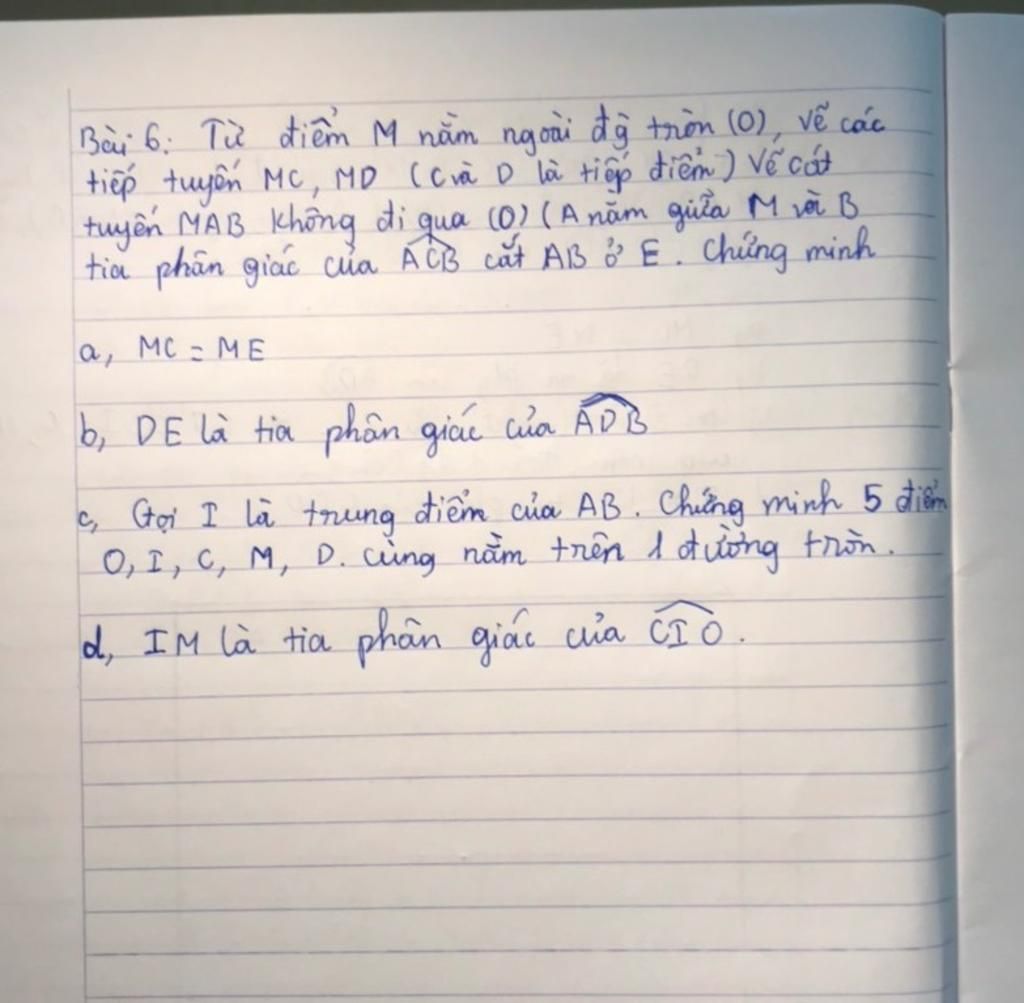 Bài 6: Từ điểm M nằm ngoài đg tròn (O), vẽ các
tiếp tuyến MC, MD (C và D là tiếp điểm) Vẽ cát
tuyến MAB không đi qua (O) (A nằm giữa M và B
tia phân giác của ACB cắt AB ở E. Chứng minh
a, MC = ME
b, DE là tia phân giác của ADB
c, Gọi I là trung điểm của AB. Chứng minh 5 điểm
O, I, C, M, D. cùng nằm trên 1 đường tròn.
d, IM là tia phân giác của CIO.